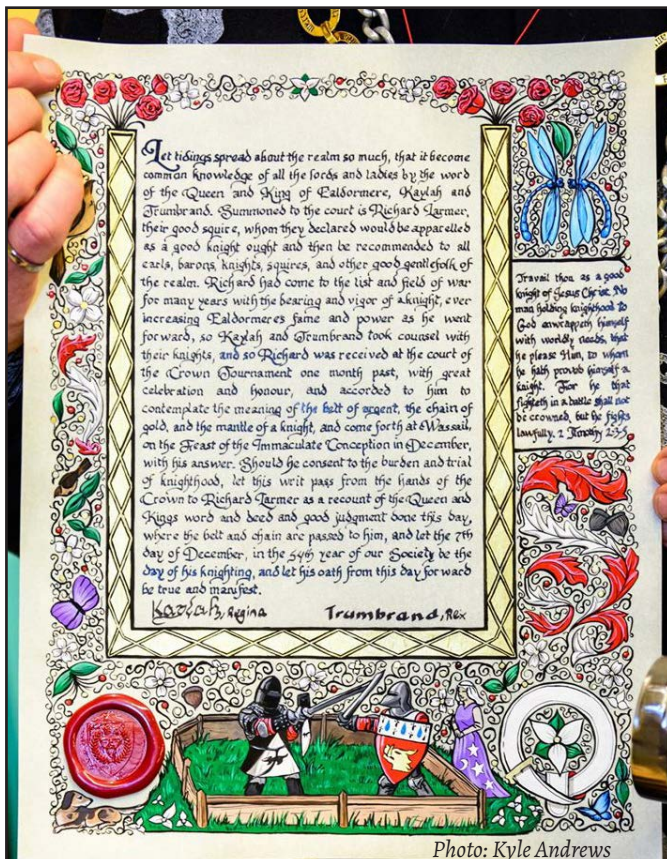 Let tidings spread about the realm so much, that it become
common knowledge of all the lords and ladies by the word
of the Queen and King of Ealdormere, Kaylah and
Trumbrand. Summoned to the court is Richard Larmer,
their good squire, whom they declared would be apparelled
as a good knight ought and then be recommended to all
earls, barons, knights, squires, and other good gentlefolk of
the realm. Richard had come to the list and field of war
for many years with the bearing and vigor of a knight, ever
increasing Ealdormere's fame and power as he went
forward, so Kaylah and Trumbrand took counsel with
their knights, and so Richard was received at the court of
the Crown Tournament one month past, with great
celebration and honour, and accorded to him to
contemplate the meaning of the belt of argent, the chain of
gold, and the mantle of a knight, and come forth at Wassail,
on the Feast of the Immaculate Conception in December,
with his answer. Should he consent to the burden and trial
of knighthood, let this writ pass from the hands of the
Crown to Richard Larmer as a recount of the Queen and
Kings word and deed and good judgment done this day,
where the belt and chain are passed to him, and let the 7th
day of December, in the 54th year of our Society be the
day of his knighting, and let his oath from this day forward
be true and manifest.
Kaylah, Regina Trumbrand, Rex
Travail thou as a good
knight of Jesus Christ. No
man holding knighthood to
God enwrappeth himself
with worldly needs, that
he please Him, to whom
he hath proved himself a
knight. For he that
fighteth in a battle shall not
be crowned, but he fights
lawfully. 2 Timothy 2:3-5
Photo: Kyle Andrews